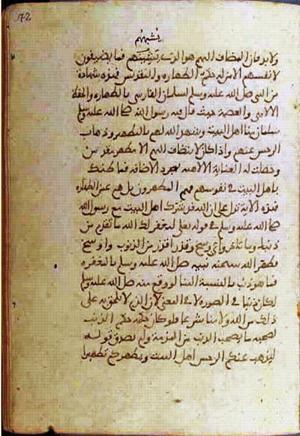 يشبههم
ولا بد فان المضاف اليهم هو الذى يشبههم فما يضيفون
لانفسهم الا من له حكم الطهارة والتقديس فهذه شهادة
من النبى صلى الله عليه وسلم لسلمان الفارسى بالطهارة والحفظ
الالهى والعصمة حيث قال فيه رسول الله صلى الله عليه وسلم
سلمان منا اهل البيت وشهد الله لهم بالتطهير وذهاب
الرجس عنهم واذا كان لا ينضاف اليهم الا مطهر مقدس
وحصلت له العناية الالهية بمجرد الاضافة فما ظنك
باهل البيت فى نفوسهم فهم المطهرون بل هم عين الطهارة
فهذه الاية تدل على ان الله قد شرك اهل البيت مع رسول الله
صلى الله عليه وسلم فى قوله تعالى ليغفر لك الله ما تقدم من
ذنبك وما تاخر واى وسخ وقذر اقذر من الذنوب واوسخ
فطهر الله سبحانه نبيه صلى الله عليه وسلم بالمغفرة
فما هو ذنب بالنسبة الينا لو وقع منه صلى الله عليه وسلم
لكان ذنبا فى الصورة لا فى المعنى لان الذم لا يلحق به على
ذلك من الله ولا منا شرعا فلو كان حكمه حكم الذنب
لصحبه ما يصحب الذنب من المذمة ولم يصدق قوله
ليذهب عنكم الرجس اهل البيت ويطهركم تطهيرا